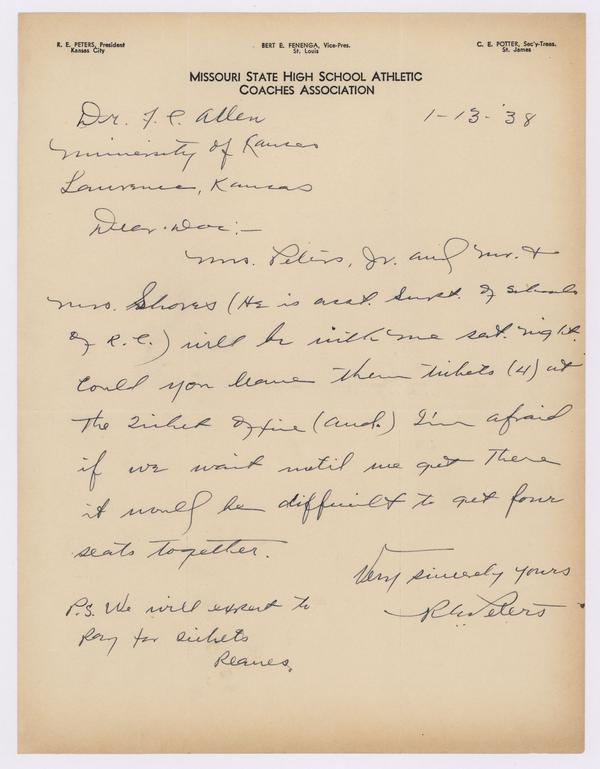 R. E. PETERS, President
Kansas City
BERT E. FENENGA, Vice-Pres.
St. Louis
C. E. POTTER, Sec'y-Treas.
St. James
MISSOURI STATE HIGH SCHOOL ATHLETIC
COACHES ASSOCIATION
Dr. F. C. Allen 1-13-'38
University of Kansas
Lawrence, Kansas
Dear Doc:—
Mrs. Peters, Jr. and Mr. &
Mrs. Shores (He is asst. Supt. of Schools
of K. C.) will be with me sat. night.
Could you leave them tickets (4) at
the ticket office (Aud.) I'm afraid
if we wait until we get there
it would be difficult to get four
seats together.
Very sincerely yours
R E Peters
P.S. We will expect to
pay for tickets
Reaves.